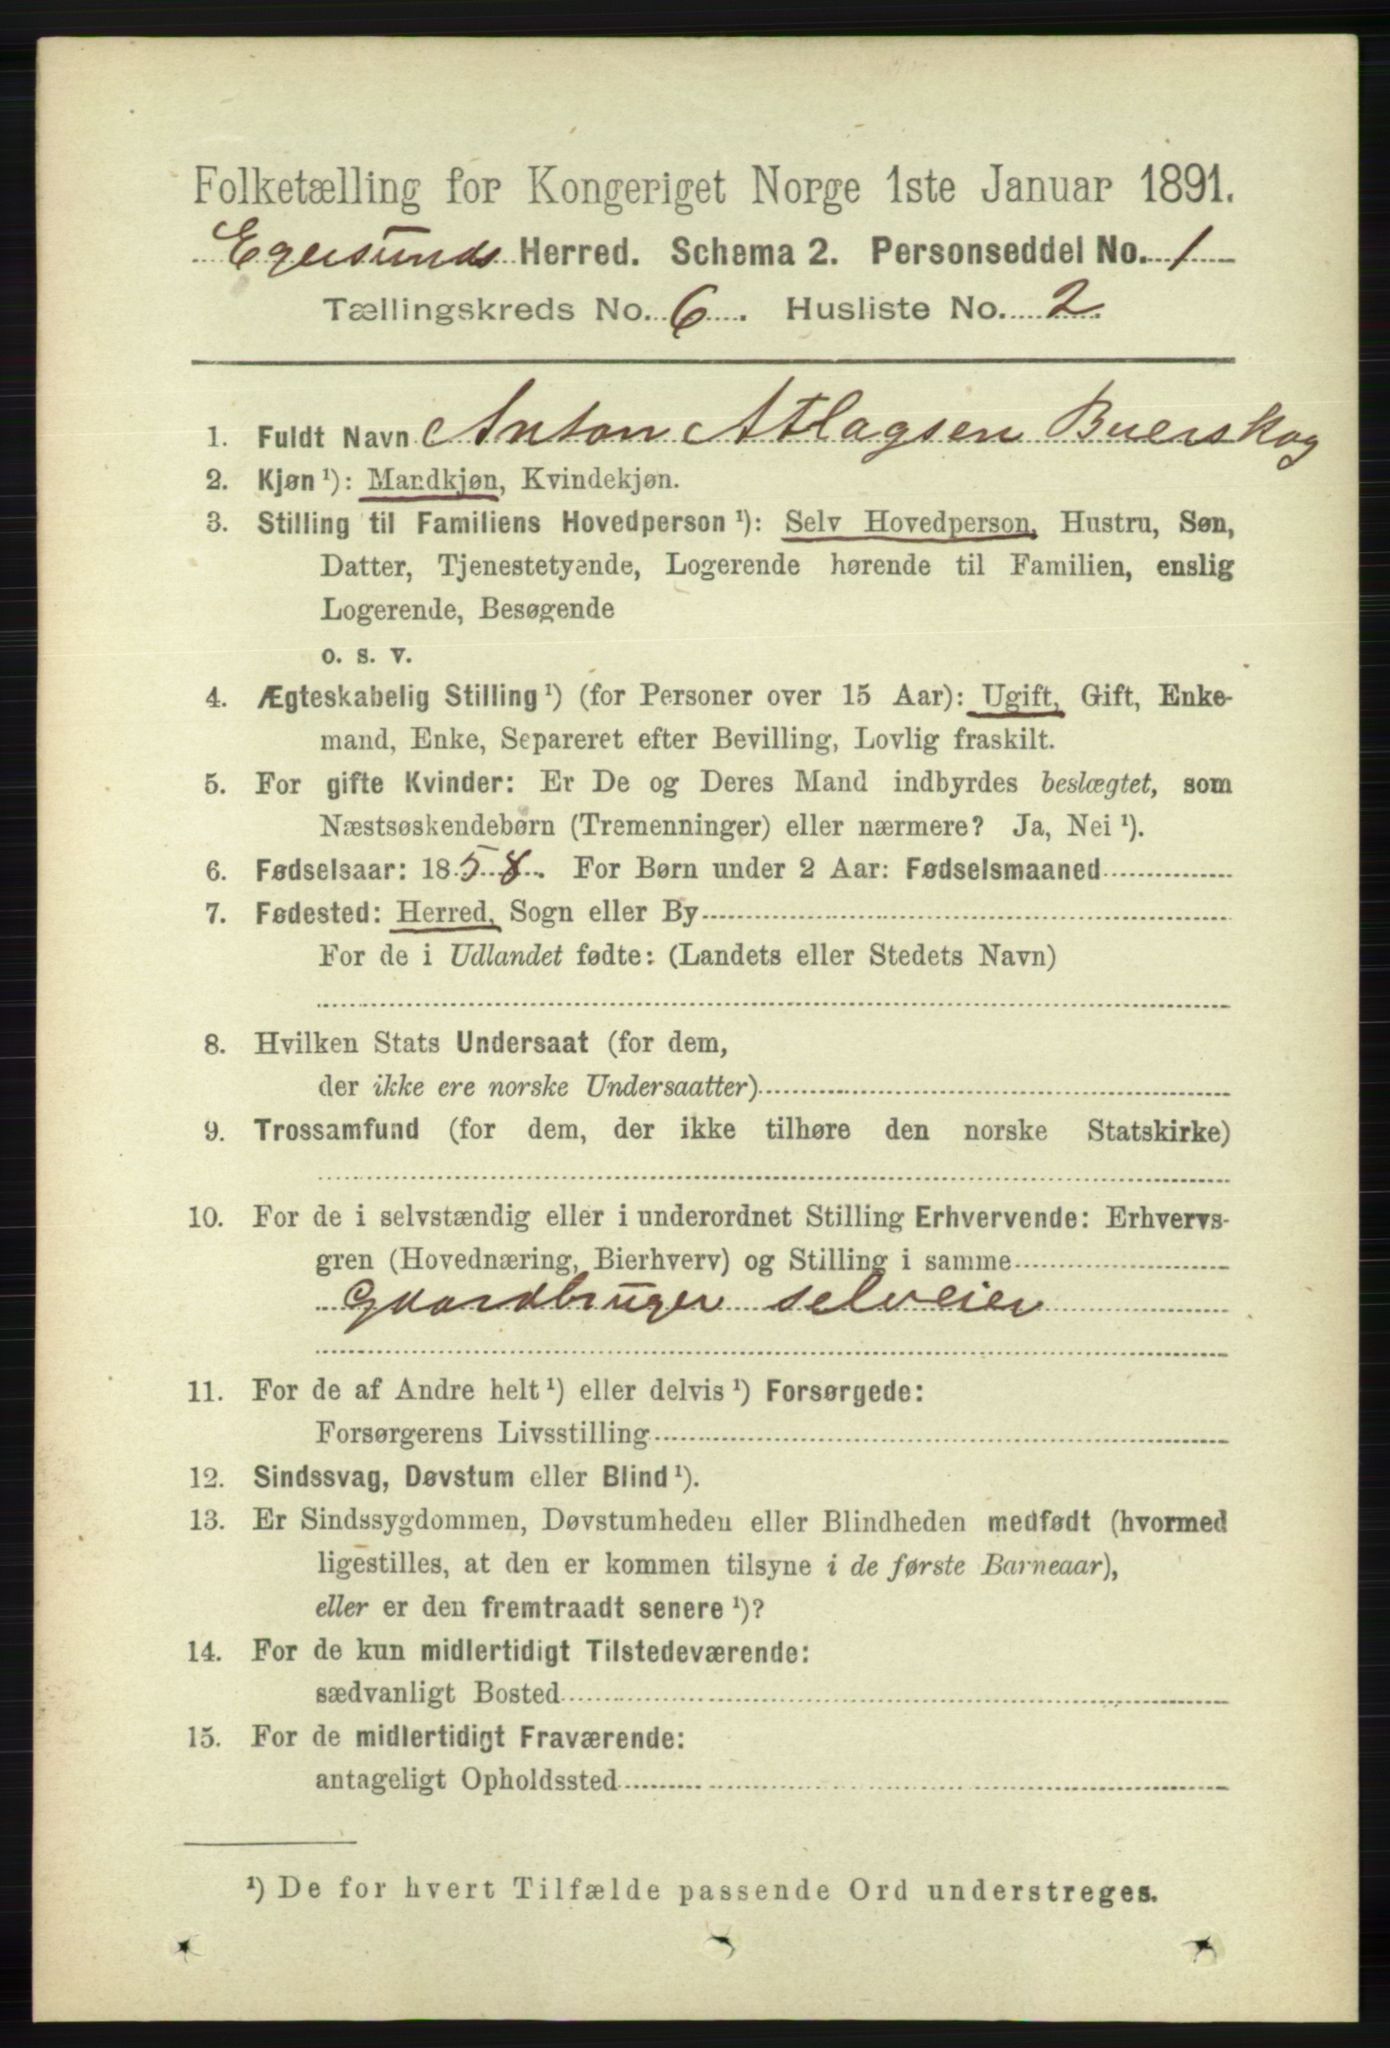 Folketælling for Kongeriget Norge 1ste Januar 1891.
Egersunds Herred. Schema 2. Personseddel No. 1
Tællingskreds No. 6. Husliste No. 2.
1. Fuldt Navn Anton Atlagsen Buerskog
2. Kjøn ¹): Mandkjøn, Kvindekjøn.
3. Stilling til Familiens Hovedperson ¹): Selv Hovedperson, Hustru, Søn,
Datter, Tjenestetyende, Logerende hørende til Familien, enslig
Logerende, Besøgende
o. s. v.
4. Ægteskabelig Stilling ¹) (for Personer over 15 Aar): Ugift, Gift, Enke-
mand, Enke, Separeret efter Bevilling, Lovlig fraskilt.
5. For gifte Kvinder: Er De og Deres Mand indbyrdes beslægtet, som
Næstsøskendebørn (Tremenninger) eller nærmere? Ja, Nei ¹).
6. Fødselsaar: 1858. For Børn under 2 Aar: Fødselsmaaned
7. Fødested: Herred, Sogn eller By
For de i Udlandet fødte: (Landets eller Stedets Navn)
8. Hvilken Stats Undersaat (for dem,
der ikke ere norske Undersaatter)
9. Trossamfund (for dem, der ikke tilhøre den norske Statskirke)
10. For de i selvstændig eller i underordnet Stilling Erhvervende: Erhvervs-
gren (Hovednæring, Bierhverv) og Stilling i samme
Gaardbruger selveier
11. For de af Andre helt ¹) eller delvis ¹) Forsørgede:
Forsørgerens Livsstilling
12. Sindssvag, Døvstum eller Blind ¹).
13. Er Sindssygdommen, Døvstumheden eller Blindheden medfødt (hvormed
ligestilles, at den er kommen tilsyne i de første Barneaar),
eller er den fremtraadt senere ¹)?
14. For de kun midlertidigt Tilstedeværende:
sædvanligt Bosted
15. For de midlertidigt Fraværende:
antageligt Opholdssted
¹) De for hvert Tilfælde passende Ord understreges.